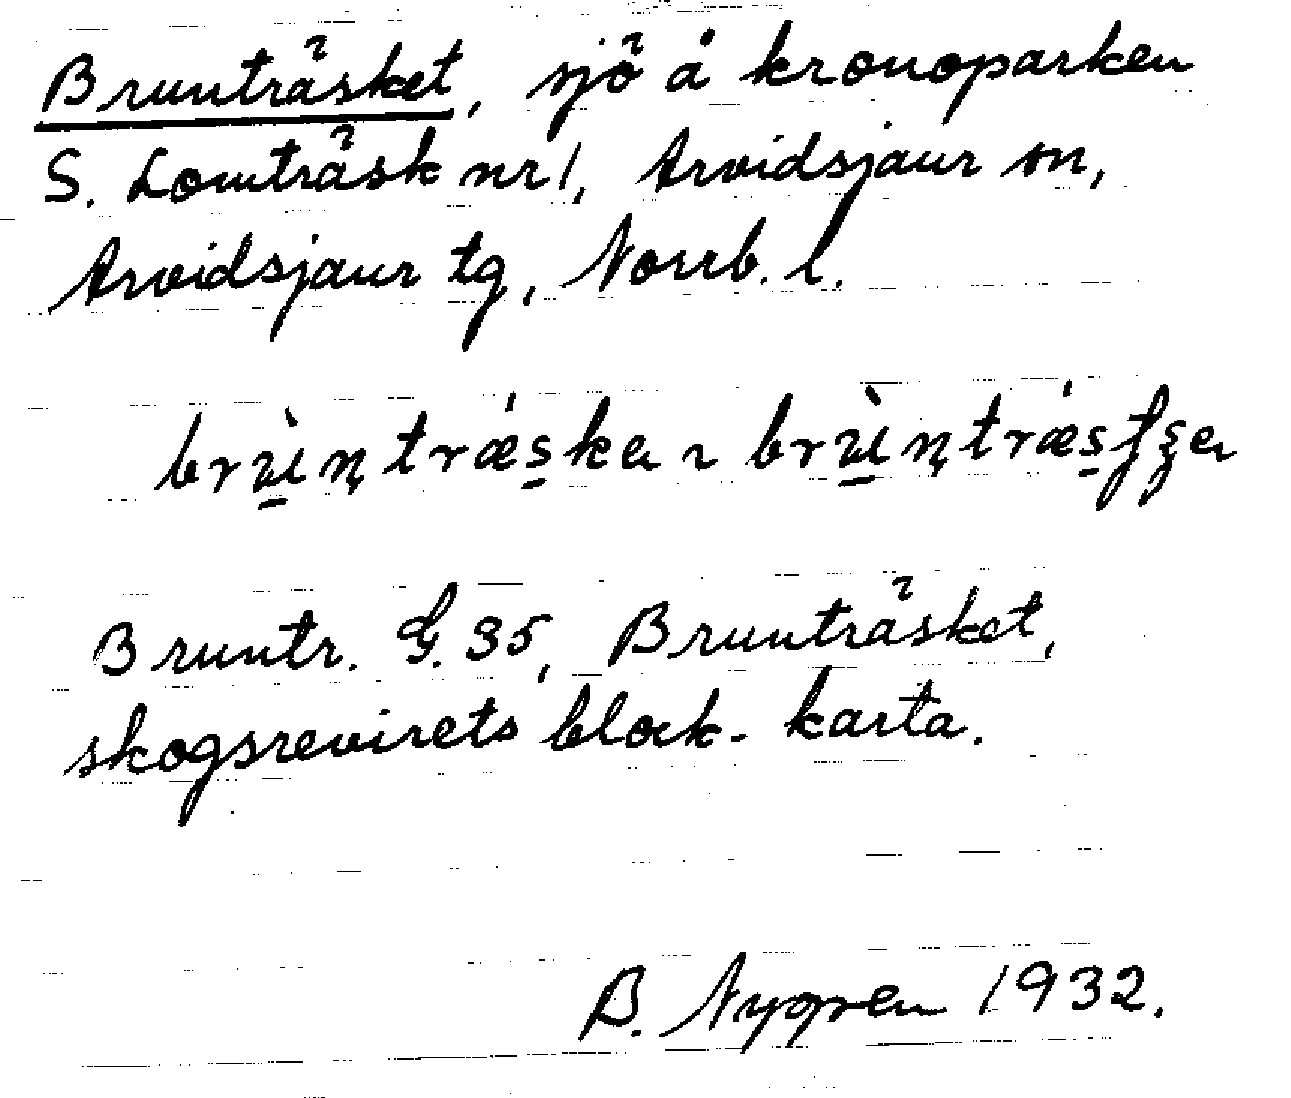 Brunträsket, sjö å kronoparken
S. Lomträsk nr 1, Arvidsjaur sn,
Arvidsjaur tg, Norrb. l.
Bruntr. G. 35, Brunträsket,
skogsrevirets block-karta.
B. Nygren 1932.